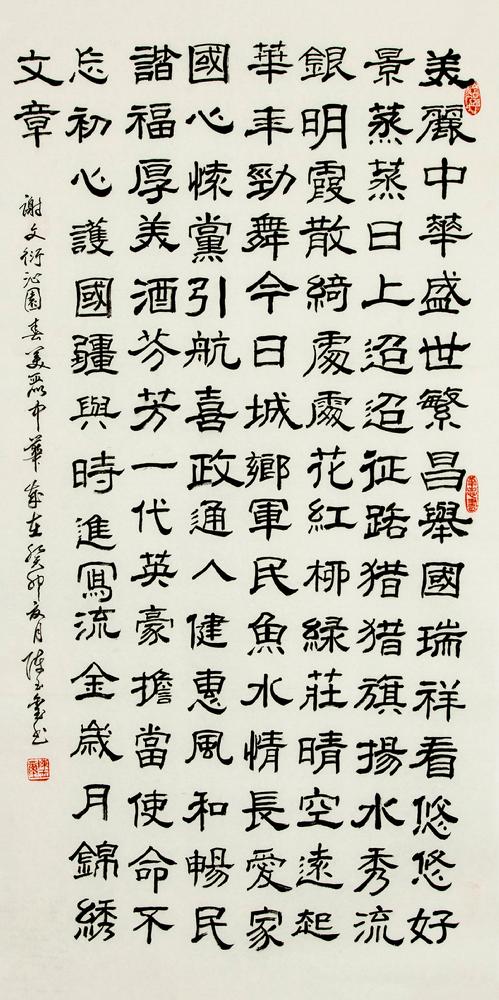 美麗中華盛世繁昌舉國瑞祥看悠悠好
景蒸蒸日上迢迢征路猎猎旗揚水秀流
銀明霞散綺處處花紅柳綠莊晴空遠起
華年勁舞今日城鄉軍民魚水情長愛家
國心愫黨引航喜政通人健惠風和暢民
諧福厚美酒芬芳一代英豪擔當使命不
忘初心護國疆與時進寫流金歲月錦綉
文章
謝文衍沁園春美麗中華歲在癸卯夏月陳玉書